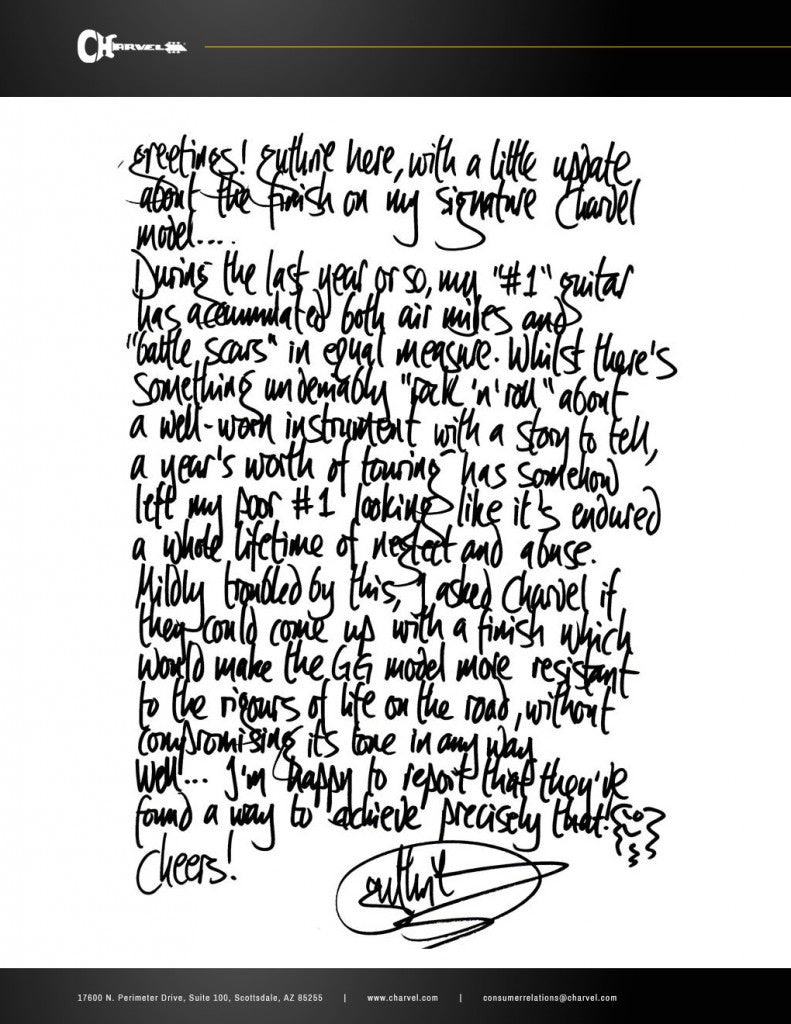 CHARVEL
greetings! guthrie here, with a little update
about the finish on my signature Charvel
model....
During the last year or so, my "#1" guitar
has accumulated both air miles and
"battle scars" in equal measure. Whilst there's
something undeniably "rock 'n' roll" about
a well-worn instrument with a story to tell,
a year's worth of touring has somehow
left my poor #1 looking like it's endured
a whole lifetime of neglect and abuse.
Mildly troubled by this, I asked Charvel if
they could come up with a finish which
would make the GG model more resistant
to the rigours of life on the road, without
compromising its tone in any way.
Well... I'm happy to report that they've
found a way to achieve precisely that!
Cheers!
guthrie
17600 N. Perimeter Drive, Suite 100, Scottsdale, AZ 85255 | www.charvel.com | consumerrelations@charvel.com